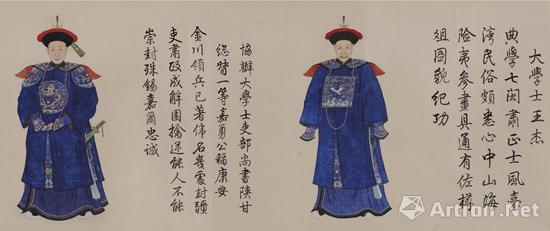 大學士王杰
典學七閩肅正士風臺
湾民俗頗悉心中山海
险夷參畫具通有佐樽
俎圖貌紀功
協辦大學士吏部尚書陕甘
总督一等嘉勇公福康安
金川領兵已著偉名幾處封疆
吏肅政成解圍擒逆能人不能
崇封殊錫嘉爾忠誠
Artron.Net